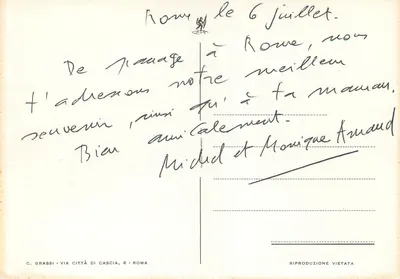 Rome, le 6 juillet.
De passage à Rome, nous
t'adressons notre meilleur
souvenir, ainsi qu'à ta maman.
Bien amicalement.
Michel et Monique Armand
C. GRASSI - VIA CITTÀ DI CASCIA, 6 - ROMA
RIPRODUZIONE VIETATA